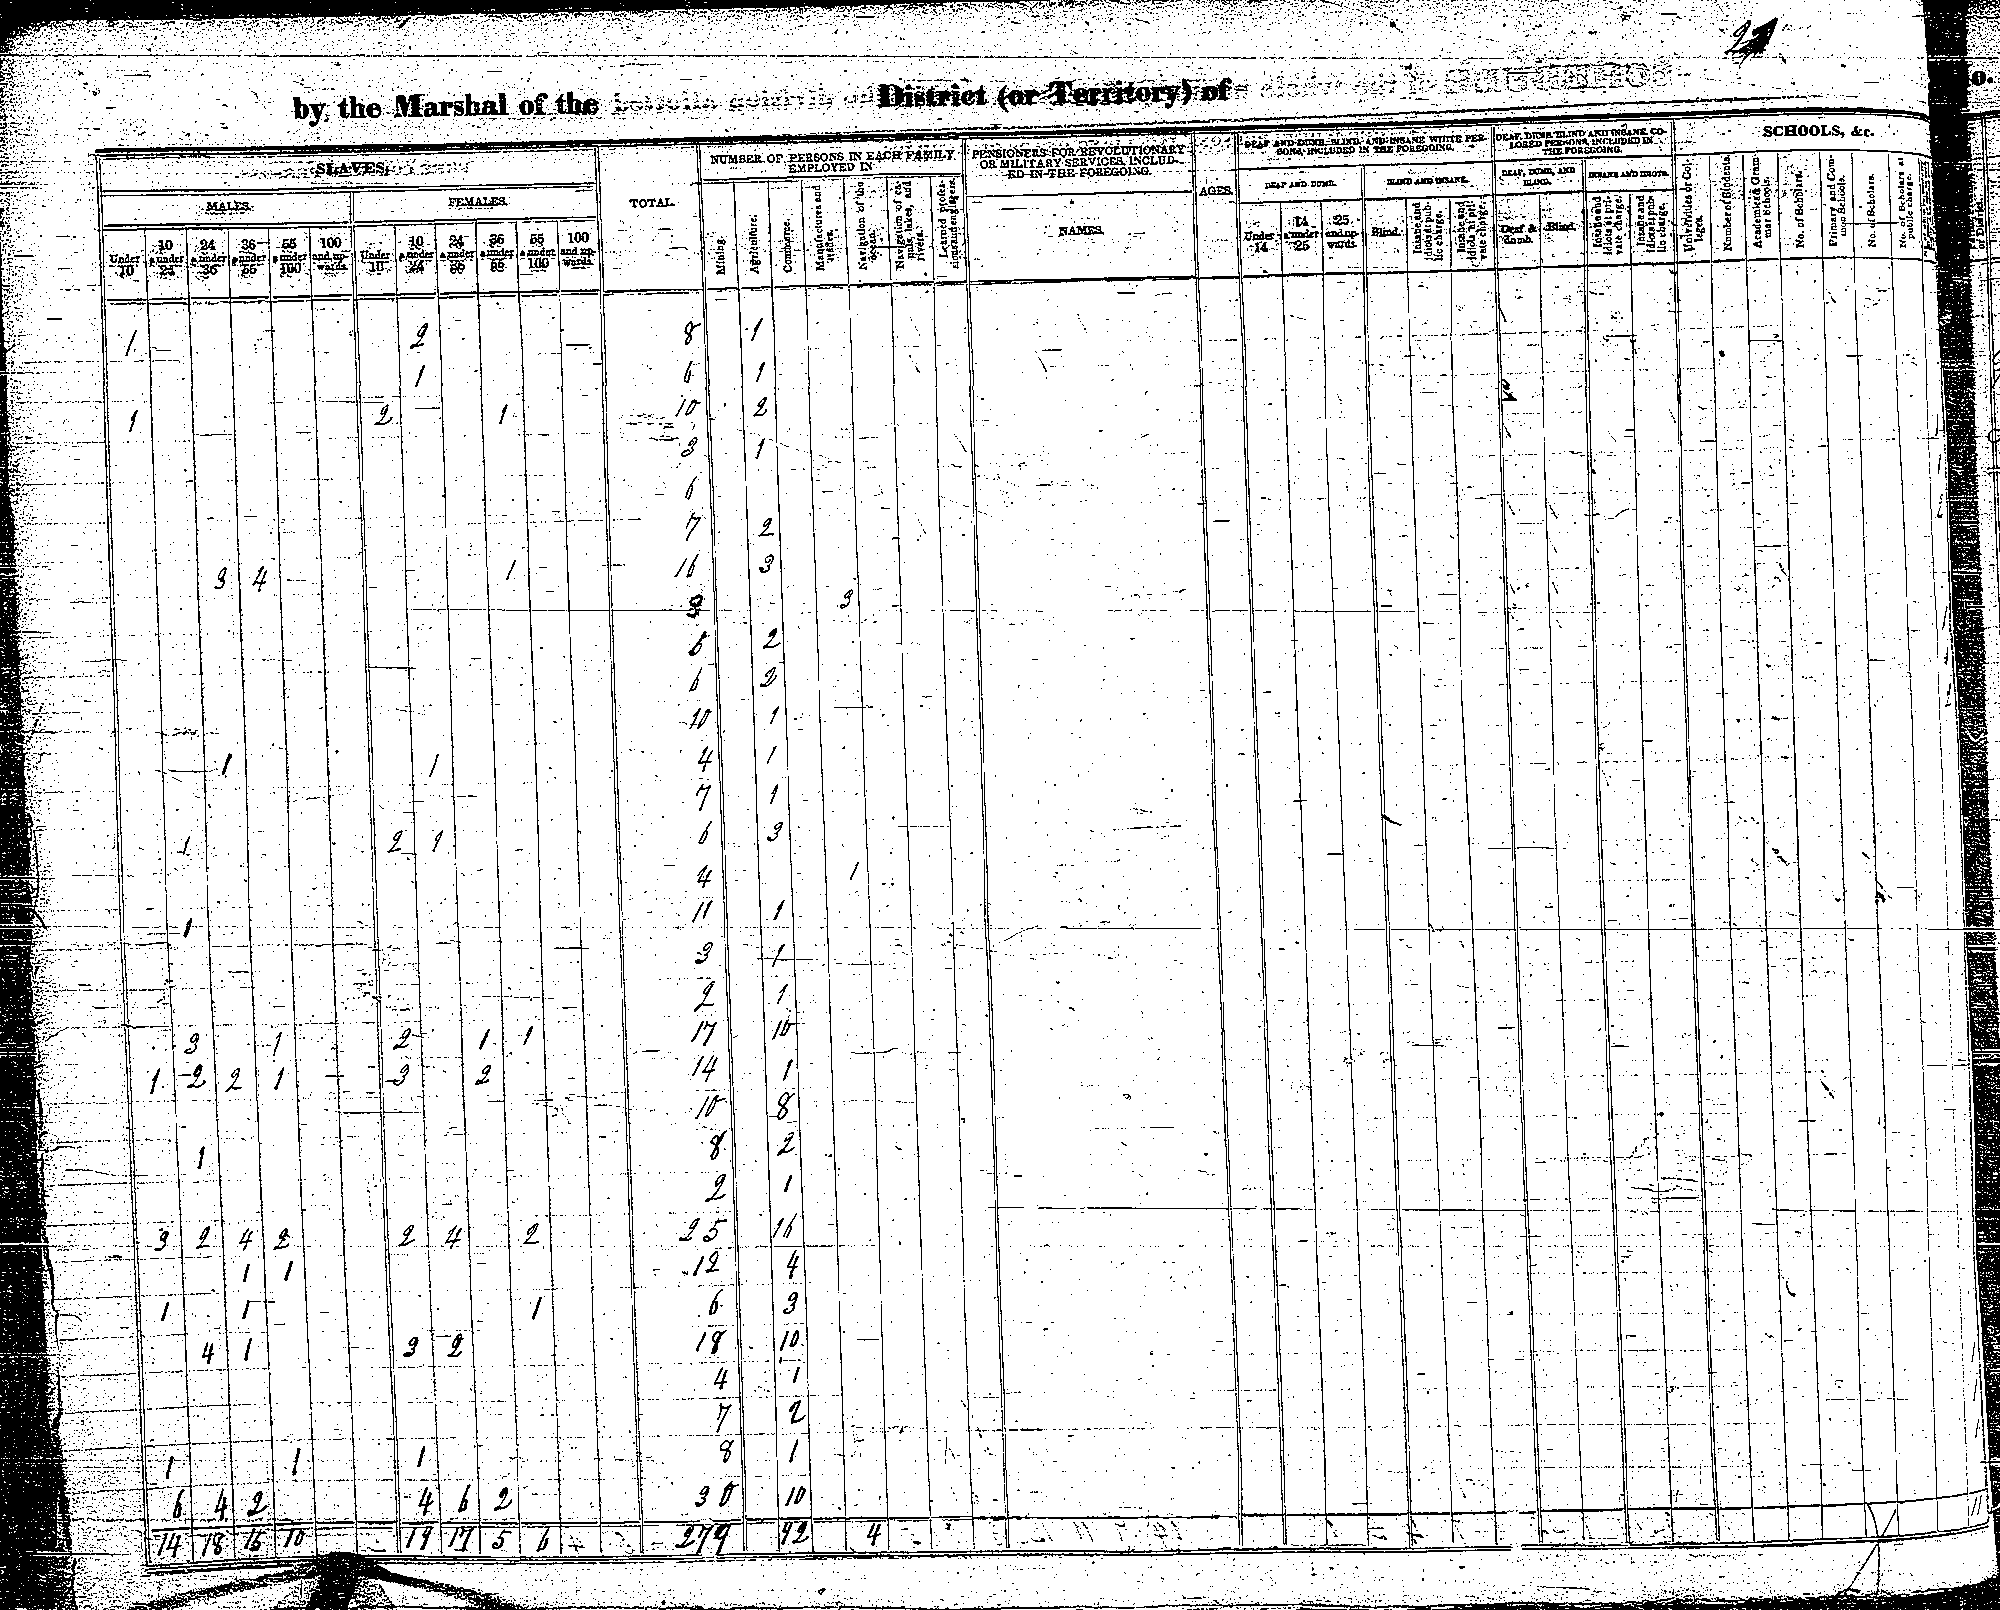 27
by the Marshal of the District (or Territory) of
SLAVES.
TOTAL.
NUMBER OF PERSONS IN EACH FAMILY EMPLOYED IN
PENSIONERS FOR REVOLUTIONARY OR MILITARY SERVICES, INCLUDED IN THE FOREGOING.
AGES.
DEAF AND DUMB, BLIND AND INSANE WHITE PERSONS, INCLUDED IN THE FOREGOING.
DEAF, DUMB, BLIND AND INSANE COLORED PERSONS, INCLUDED IN THE FOREGOING.
SCHOOLS, &c.
MALES. FEMALES.
NAMES.
DEAF AND DUMB. BLIND AND INSANE. DEAF, DUMB, AND BLIND. INSANE AND IDIOTS.
Under 10 10 & under 24 24 & under 36 36 & under 55 55 & under 100 100 and upwards. Under 10 10 & under 24 24 & under 36 36 & under 55 55 & under 100 100 and upwards.
Mining. Agriculture. Commerce. Manufactures and trades. Navigation of the ocean. Navigation of canals, lakes, and rivers. Learned professions and engineers.
Under 14 14 & under 25 25 and upwards. Blind. Insane and idiots at public charge. Insane and idiots at private charge. Deaf & dumb. Blind. Insane and idiots at private charge. Insane and idiots at public charge.
Universities or Colleges. Number of Students. Academies & Grammar Schools. No. of Scholars. Primary and Common Schools. No. of Scholars. No. of Scholars at public charge.
1 2 8 1
1 6 1
1 2 1 10 2
3 1
6
7 2
3 4 1 16 3
3 3
6 2
6 2
10 1
1 1 4 1
7 1
1 2 1 6 3
4 1
1 11 1
3 1
2 1
3 1 2 1 1 17 10
1 2 2 1 3 2 14 1
10 8
1 8 2
2 1
3 2 4 2 2 4 2 25 16
1 1 12 4
1 1 1 6 3
4 1 3 2 18 10
4 1
7 2
1 1 1 8 1
6 4 2 4 6 2 30 10
14 18 16 10 19 17 5 6 279 92 4